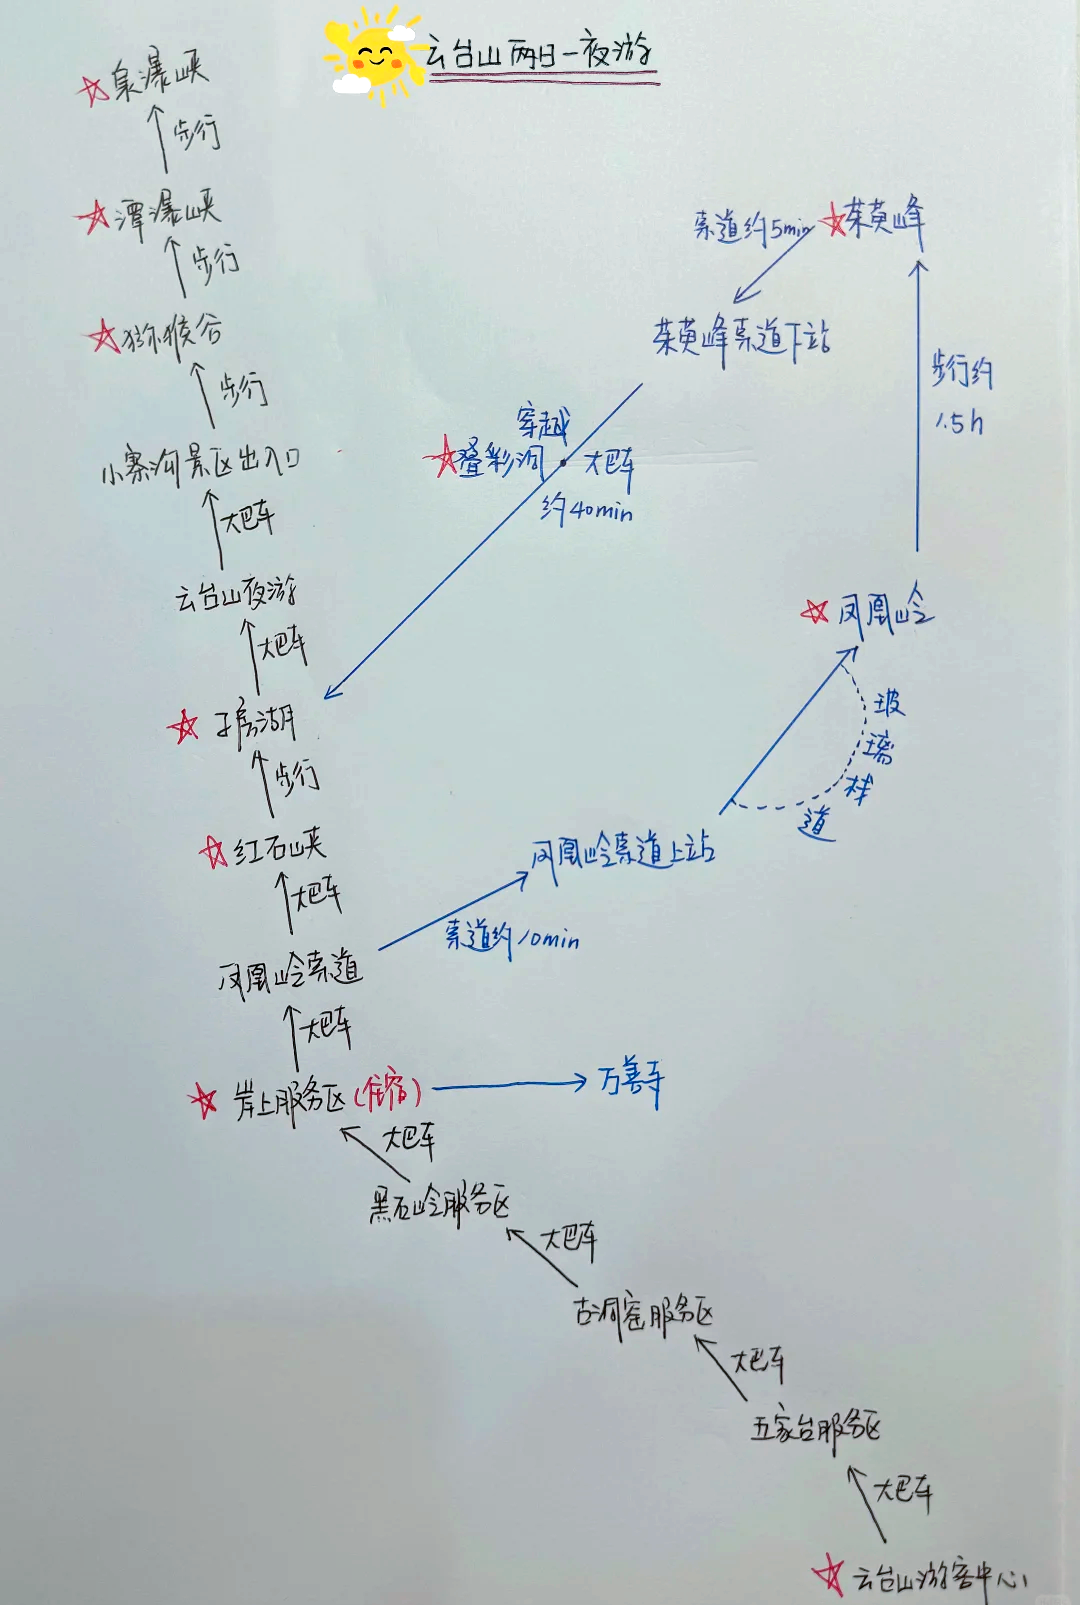 云台山两日一夜游
泉瀑峡
步行
潭瀑峡
步行
猕猴谷
步行
小寨沟景区出入口
大巴车
云台山夜游
大巴车
子房湖
步行
红石峡
大巴车
凤凰岭索道
大巴车
岸上服务区(住宿)
万善寺
大巴车
黑石岭服务区
大巴车
古洞窑服务区
大巴车
五家台服务区
大巴车
云台山游客中心
索道约10min
凤凰岭索道上站
玻璃栈道
凤凰岭
步行约
1.5h
茱萸峰
索道约5min
茱萸峰索道下站
穿越
叠彩洞
大巴车
约40min